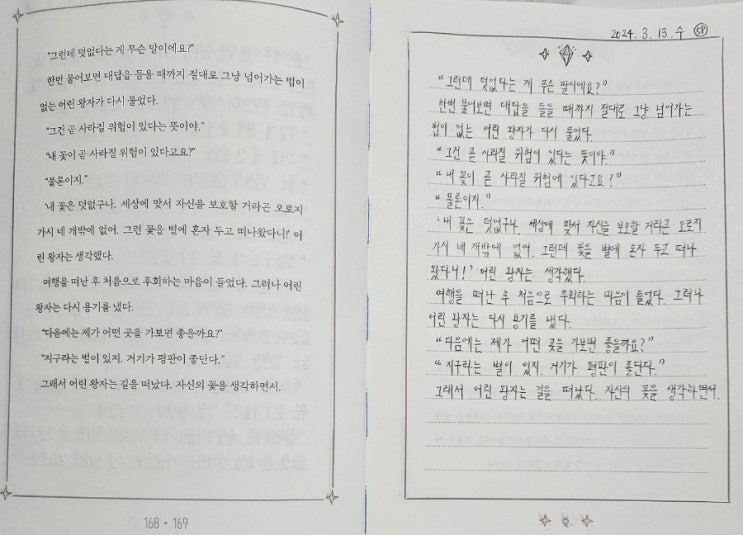 "그런데 덧없다는 게 무슨 말이에요?"
한번 물어보면 대답을 들을 때까지 절대로 그냥 넘어가는 법이
없는 어린 왕자가 다시 물었다.
"그건 곧 사라질 위험이 있다는 뜻이야."
"내 꽃이 곧 사라질 위험이 있다고요?"
"물론이지."
'내 꽃은 덧없구나. 세상에 맞서 자신을 보호할 거라곤 오로지
가시 네 개밖에 없어. 그런 꽃을 별에 혼자 두고 떠나왔다니!' 어
린 왕자는 생각했다.
여행을 떠난 후 처음으로 후회하는 마음이 들었다. 그러나 어린
왕자는 다시 용기를 냈다.
"다음에는 제가 어떤 곳을 가보면 좋을까요?"
"지구라는 별이 있지. 거기가 평판이 좋단다."
그래서 어린 왕자는 길을 떠났다. 자신의 꽃을 생각하면서.
168 • 169
2024. 3. 13. 수
"그런데 덧없다는 게 무슨 말이에요?"
한번 물어보면 대답을 들을 때까지 절대로 그냥 넘어가는
법이 없는 어린 왕자가 다시 물었다.
"그건 곧 사라질 위험이 있다는 뜻이야."
"내 꽃이 곧 사라질 위험에 있다고요?"
"물론이지."
'내 꽃은 덧없구나. 세상에 맞서 자신을 보호할 거라곤 오로지
가시 네 개밖에 없어. 그런데 꽃을 별에 혼자 두고 떠나
왔다니!' 어린 왕자는 생각했다.
여행을 떠난 후 처음으로 후회하는 마음이 들었다. 그러나
어린 왕자는 다시 용기를 냈다.
"다음에는 제가 어떤 곳을 가보면 좋을까요?"
"지구라는 별이 있지. 거기가 평판이 좋단다."
그래서 어린 왕자는 길을 떠났다. 자신의 꽃을 생각하면서.